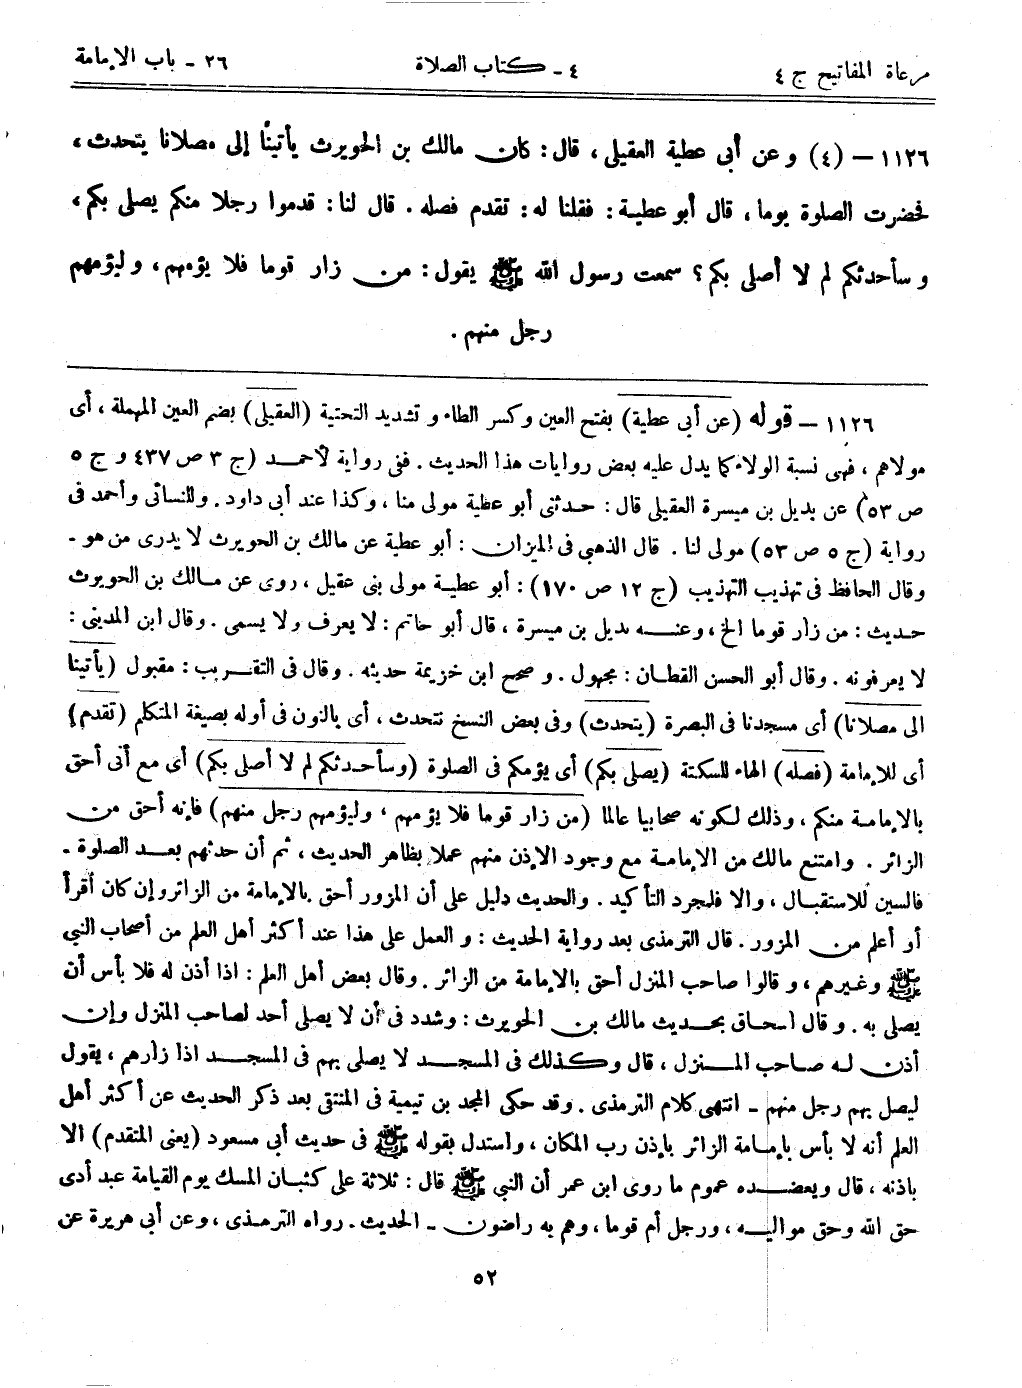 مرعاة المفاتيح ج ٤
٤ ـ كتاب الصلاة
٢٦ ـ باب الإمامة
١١٢٦ – (٤) وعن أبى عطية العقيلى، قال: كان مالك بن الحويرث يأتينا إلى مصلانا يتحدث،
فحضرت الصلوة يوما، قال أبو عطية: فقلنا له: تقدم فصله. قال لنا: قدموا رجلا منكم يصلى بكم،
وسأحدثكم لم لا أصلى بكم؟ سمعت رسول الله ﷺ يقول: من زار قوما فلا يؤمهم، وليؤمهم
رجل منهم.
١١٢٦ – قوله (عن أبى عطية) بفتح العين وكسر الطاء وتشديد التحتية (العقيلى) بضم العين المهملة، أى
مولاهم، فهى نسبة الولاء كما يدل عليه بعض روايات هذا الحديث. ففى رواية لأحمد (ج ٣ ص ٤٣٧ وج ٥
ص ٥٣) عن بديل بن ميسرة العقيلى قال: حدثنى أبو عطية مولى منا، وكذا عند أبى داود. وللنسائى وأحمد فى
رواية (ج ٥ ص ٥٣) مولى لنا. قال الذهبى فى الميزان: أبو عطية عن مالك بن الحويرث لا يدرى من هو ـ
وقال الحافظ فى تهذيب التهذيب (ج ١٢ ص ١٧٠): أبو عطية مولى بنى عقيل، روى عن مالك بن الحويرث
حديث: من زار قوما الخ، وعنه بديل بن ميسرة، قال أبو حاتم: لا يعرف ولا يسمى. وقال ابن المدينى:
لا يعرفونه. وقال أبو الحسن القطان: مجهول. وصحح ابن خزيمة حديثه. وقال فى التقريب: مقبول (يأتينا
الى مصلانا) أى مسجدنا فى البصرة (يتحدث) وفى بعض النسخ نتحدث، أى بالنون فى أوله بصيغة المتكلم (تقدم)
أى للإمامة (فصله) الهاء للسكتة (يصلى بكم) أى يؤمكم فى الصلوة (وسأحدثكم لم لا أصلى بكم) أى مع أنى أحق
بالإمامة منكم، وذلك لكونه صحابيا عالما (من زار قوما فلا يؤمهم، وليؤمهم رجل منهم) فإنه أحق من
الزائر. وامتنع مالك من الإمامة مع وجود الإذن منهم عملا بظاهر الحديث، ثم أن حدثهم بعد الصلوة ـ
فالسين للاستقبال، والا فلمجرد التأكيد. والحديث دليل على أن المزور أحق بالإمامة من الزائر وإن كان أقرأ
أو أعلم من المزور. قال الترمذى بعد رواية الحديث: والعمل على هذا عند أكثر أهل العلم من أصحاب النبى
ﷺ وغيرهم، وقالوا صاحب المنزل أحق بالإمامة من الزائر. وقال بعض أهل العلم: اذا أذن له فلا بأس أن
يصلى به. وقال اسحاق بحديث مالك بن الحويرث: وشدد فى أن لا يصلى أحد لصاحب المنزل وإن
أذن له صاحب المنزل، قال وكذلك فى المسجد لا يصلى بهم فى المسجد اذا زارهم، يقول
ليصل بهم رجل منهم ـ انتهى كلام الترمذى. وقد حكى المجد بن تيمية فى المنتقى بعد ذكر الحديث عن أكثر أهل
العلم أنه لا بأس بإمامة الزائر بإذن رب المكان، واستدل بقوله ﷺ فى حديث أبى مسعود (يعنى المتقدم) الا
باذنه، قال ويعضده عموم ما روى ابن عمر أن النبى ﷺ قال: ثلاثة على كثبان المسك يوم القيامة عبد أدى
حق الله وحق مواليه، ورجل أم قوما، وهم به راضون ـ الحديث. رواه الترمذى، وعن أبى هريرة عن
٥٢